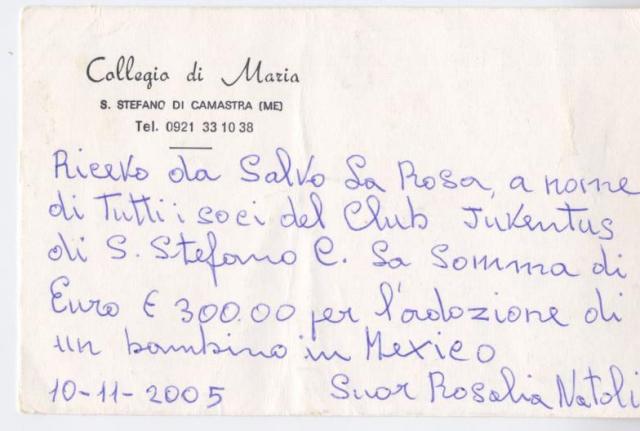 Collegio di Maria
S. STEFANO DI CAMASTRA (ME)
Tel. 0921 33 10 38
Ricevo da Salvo La Rosa, a nome
di Tutti i soci del Club Juventus
di S. Stefano C. La Somma di
Euro € 300.00 per l'adozione di
un bambino in Mexico
10-11-2005 Suor Rosalia Natoli